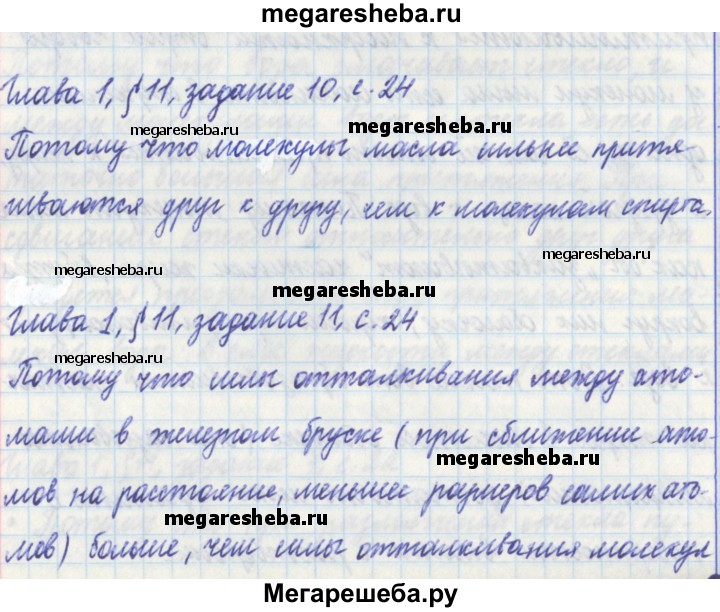 megaresheba.ru
Глава 1, § 11, задание 10, с. 24
megaresheba.ru
megaresheba.ru
Потому что молекулы масла сильнее притя-
гиваются друг к другу, чем к молекулам спирта.
megaresheba.ru
megaresheba.ru
Глава 1, § 11, задание 11, с. 24
megaresheba.ru
megaresheba.ru
Потому что силы отталкивания между ато-
мами в железном бруске (при сближении ато-
megaresheba.ru
мов на расстояние, меньшее размеров самих ато-
megaresheba.ru
мов) больше, чем силы отталкивания молекул
Мегарешеба.ру